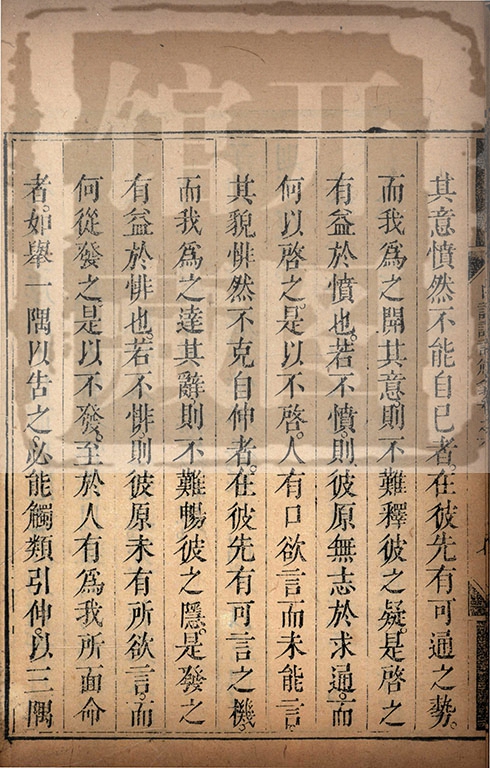 其意憤然不能自已者。在彼先有可通之勢。
而我為之開其意。則不難釋彼之疑。是啓之
有益於憤也。若不憤。則彼原無志於求通。而
何以啓之。是以不啓。人有口欲言而未能言。
其貌悱然不克自伸者。在彼先有可言之機。
而我為之達其辭。則不難暢彼之隱。是發之
有益於悱也。若不悱。則彼原未有所欲言。而
何從發之。是以不發。至於人有為我所面命
者。如舉一隅以告之。必能觸類引伸。以三隅